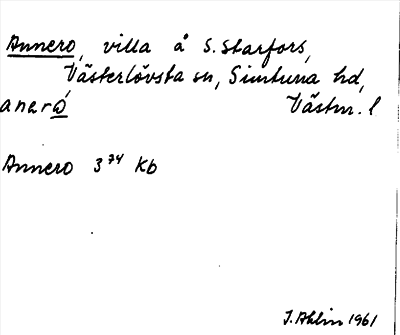 Annero, villa å S. Starfors,
Västerlövsta sn, Simtuna hd,
anerώ Västm. l
Annero 3⁷⁴ Kb
J. Ahlin 1961